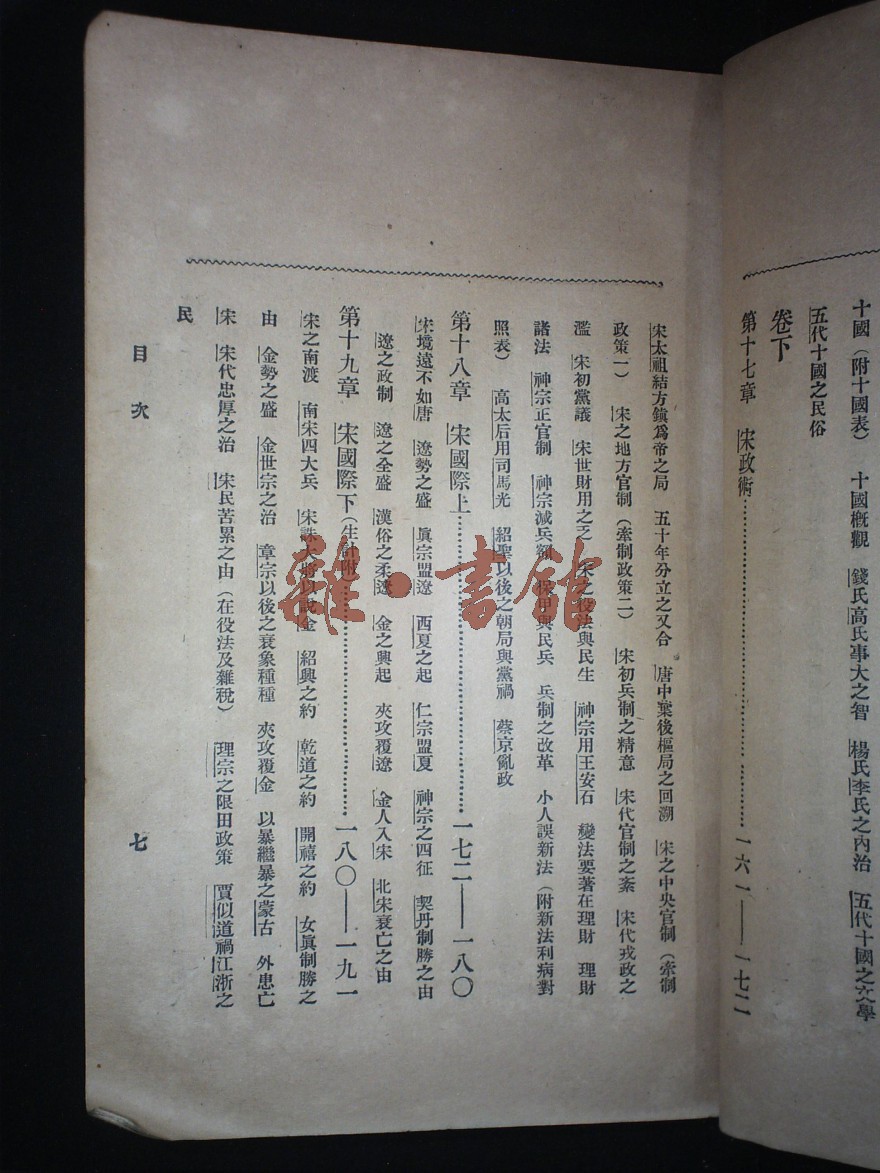 十國(附十國表) 十國概觀 錢氏高氏事大之智 楊氏李氏之內治 五代十國之文學
五代十國之民俗
卷下
第十七章 宋政術…………一六一——一七二
宋太祖結方鎭爲帝之局 五十年分立之又合 唐中葉後樞局之回溯 宋之中央官制(牽制
政策一) 宋之地方官制(牽制政策二) 宋初兵制之精意 宋代官制之紊 宋代戎政之
濫 宋初黨議 宋世財用之乏 宋之役法與民生 神宗用王安石 變法要著在理財 理財
諸法 神宗正官制 神宗減兵額 保甲與民兵 兵制之改革 小人誤新法(附新法利病對
照表) 高太后用司馬光 紹聖以後之朝局與黨禍 蔡京亂政
第十八章 宋國際上…………一七二——一八〇
宋境遠不如唐 遼勢之盛 眞宗盟遼 西夏之起 仁宗盟夏 神宗之四征 契丹制勝之由
遼之政制 遼之全盛 漢俗之柔遼 金之興起 夾攻覆遼 金人入宋 北宋衰亡之由
第十九章 宋國際下(生計附)…………一八〇——一九一
宋之南渡 南宋四大兵 宋誅大將以說金 紹興之約 乾道之約 開禧之約 女眞制勝之
由 金勢之盛 金世宗之治 章宗以後之衰象種種 夾攻覆金 以暴繼暴之蒙古 外患亡
宋 宋代忠厚之治 宋民苦累之由(在役法及雜稅) 理宗之限田政策 賈似道禍江浙之
民
目次
七
雜·書館